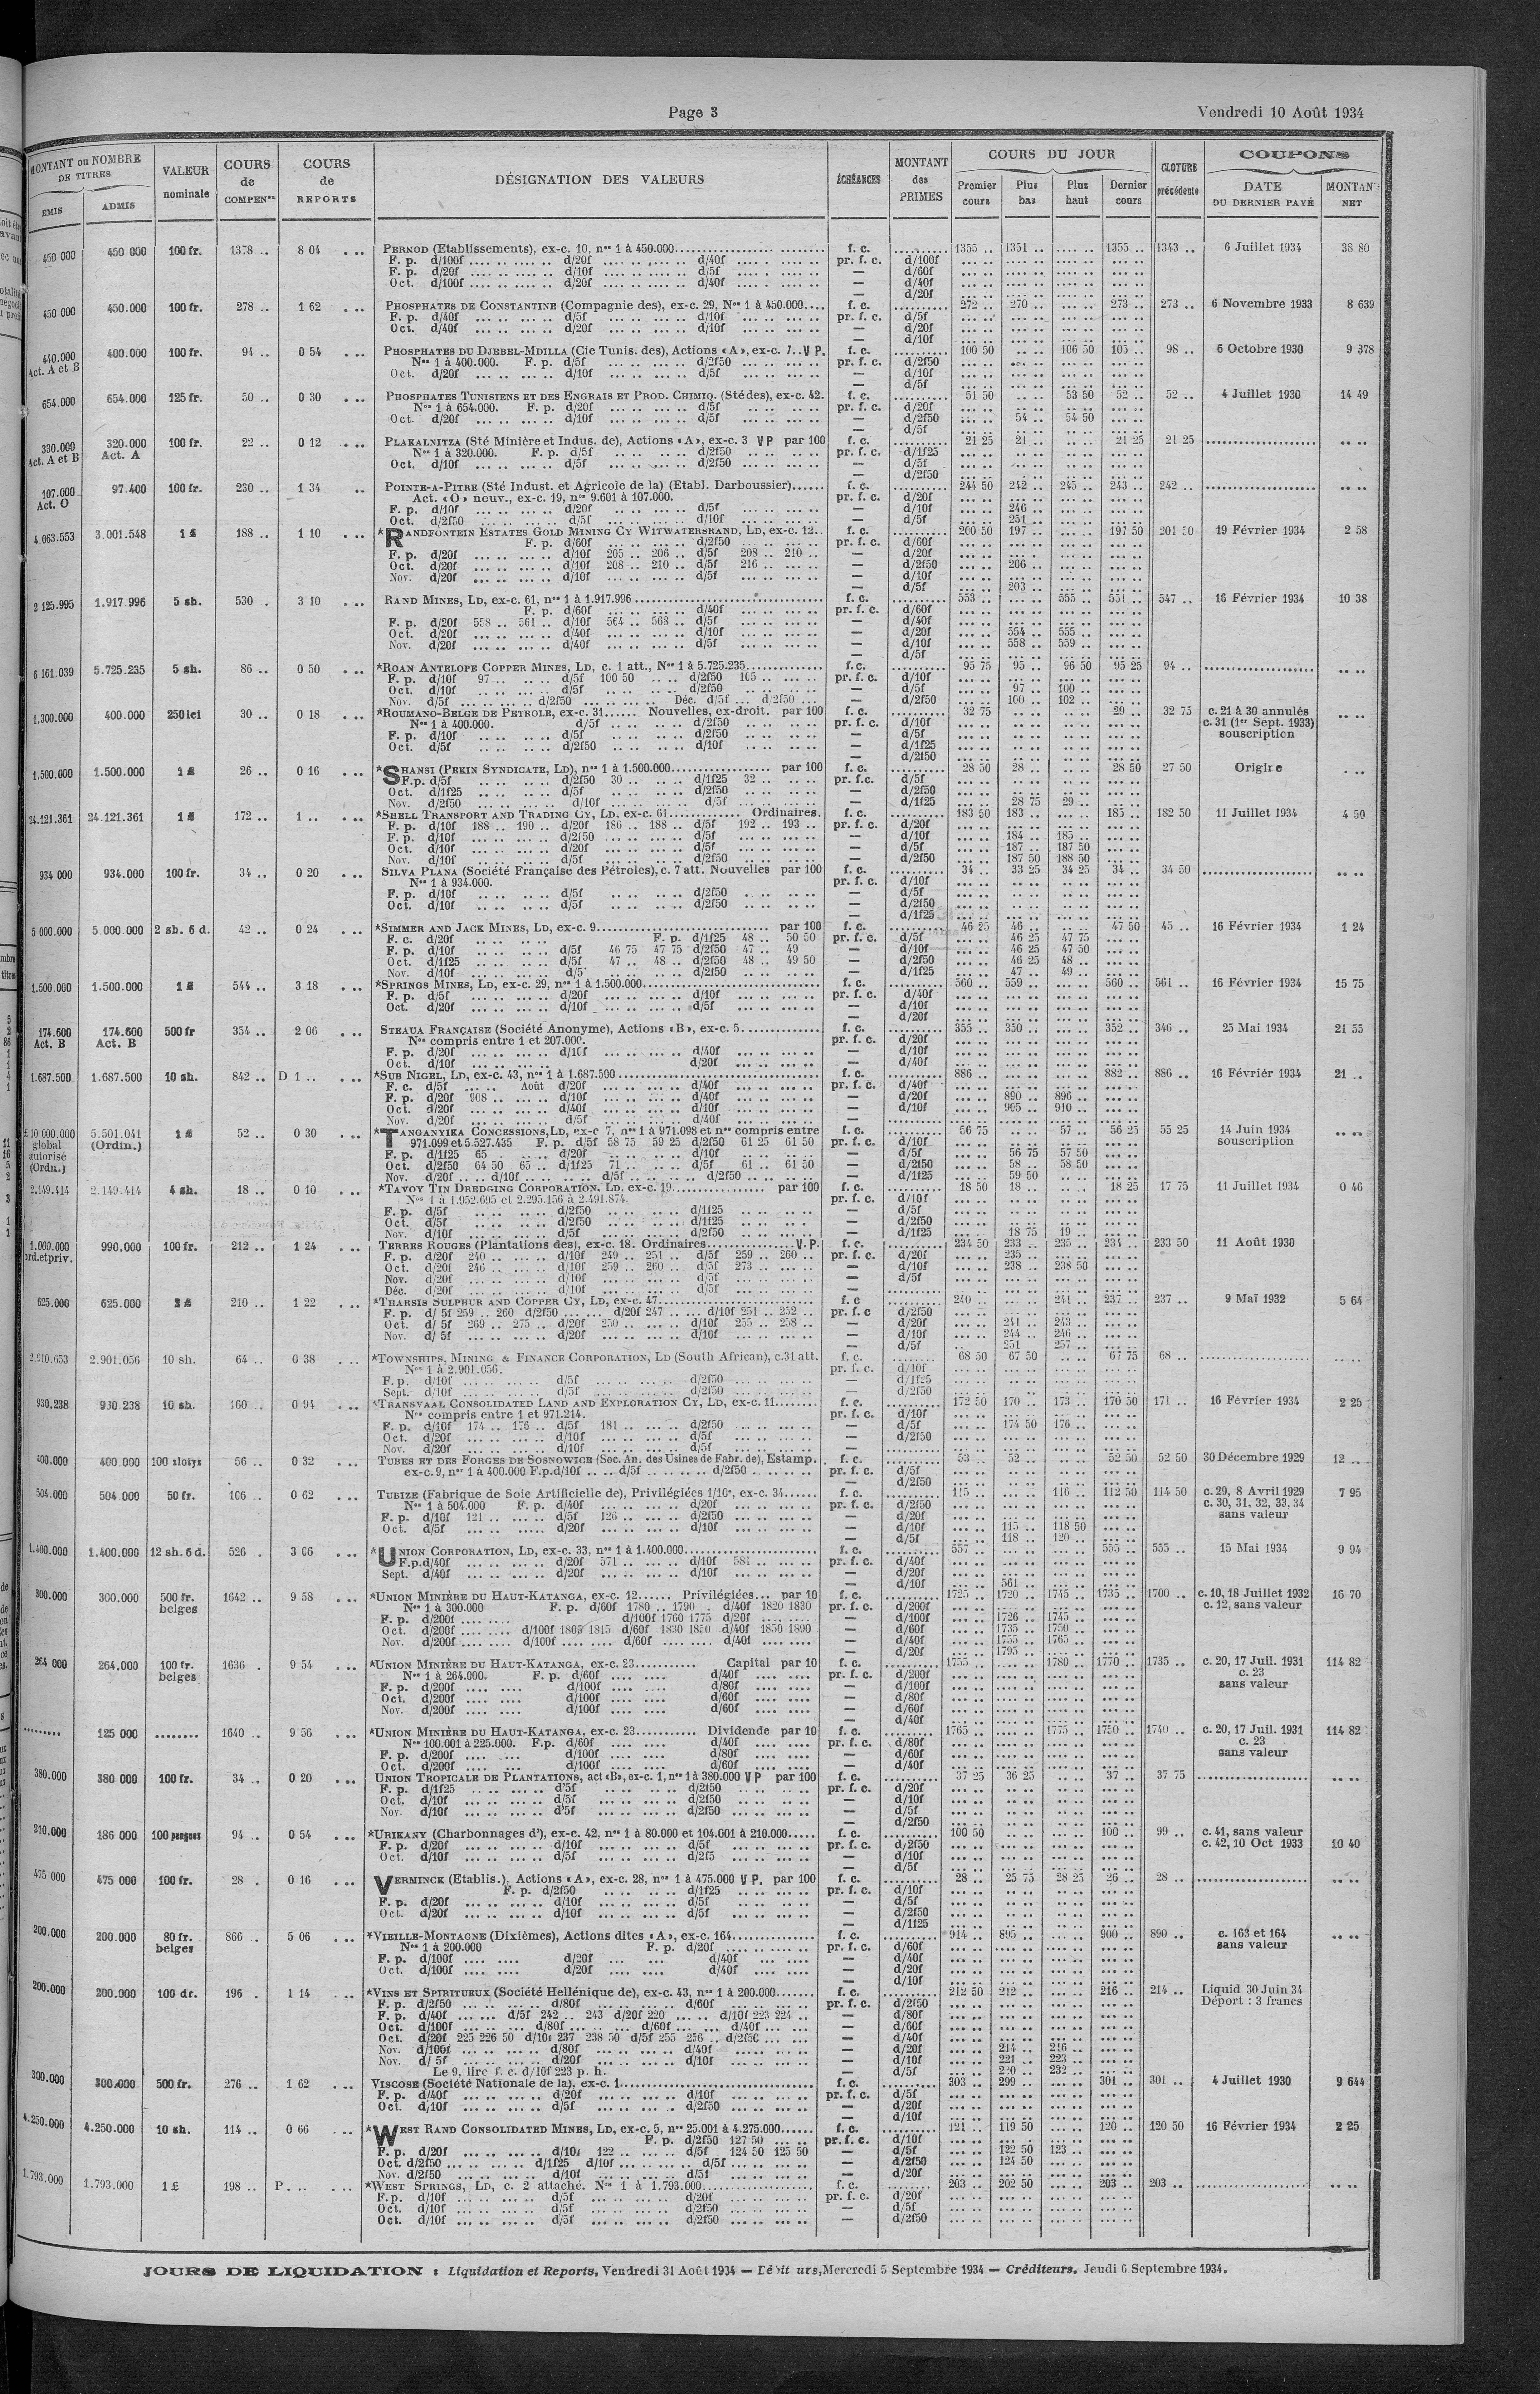 Page 3
Vendredi 10 Août 1934
MONTANT ou NOMBRE DE TITRES
EMIS ADMIS
VALEUR nominale
COURS de COMPENon
COURS de REPORTS
DÉSIGNATION DES VALEURS
ÉCHÉANCES
MONTANT des PRIMES
COURS DU JOUR
Premier cours Plus bas Plus haut Dernier cours
CLOTURE précédente
COUPONS
DATE DU DERNIER PAYÉ
MONTAN NET
450 000 450 000 100 fr. 1378 .. 8 04 PERNOD (Etablissements), ex-c. 10, nos 1 à 450.000 f. c. 1355 .. 1351 .. 1355 .. 1343 .. 6 Juillet 1934 38 80
F. p. d/100f d/20f d/40f pr. f. c. d/100f
F. p. d/20f d/10f d/5f — d/60f
Oct. d/100f d/20f d/40f — d/40f
— d/20f
450 000 450.000 100 fr. 278 .. 1 62 PHOSPHATES DE CONSTANTINE (Compagnie des), ex-c. 29, Nos 1 à 450.000 f. c. 272 .. 270 .. 273 .. 273 .. 6 Novembre 1933 8 639
F. p. d/40f d/5f d/10f pr. f. c. d/5f
Oct. d/40f d/20f d/10f — d/20f
— d/10f
440.000 Act. A et B 400.000 100 fr. 94 .. 0 54 PHOSPHATES DU DJEBEL-MDILLA (Cie Tunis. des), Actions «A», ex-c. 7..V P. f. c. 100 50 106 50 105 .. 98 .. 6 Octobre 1930 9 378
Nos 1 à 400.000. F. p. d/5f d/2f50 pr. f. c. d/2f50
Oct. d/20f d/10f d/5f — d/10f
— d/5f
654.000 654.000 125 fr. 50 .. 0 30 PHOSPHATES TUNISIENS ET DES ENGRAIS ET PROD. CHIMIQ. (Sté des), ex-c. 42. f. c. 51 50 53 50 52 .. 52 .. 4 Juillet 1930 14 49
Nos 1 à 654.000. F. p. d/20f d/5f pr. f. c. d/20f
Oct. d/20f d/10f d/5f — d/2f50 54 .. 54 50
— d/5f
330.000 Act. A et B 320.000 Act. A 100 fr. 22 .. 0 12 PLAKALNITZA (Sté Minière et Indus. de), Actions «A», ex-c. 3 V P par 100 f. c. 21 25 21 .. 21 25 21 25
Nos 1 à 320.000. F. p. d/5f d/2f50 pr. f. c. d/1f25
Oct. d/10f d/5f d/2f50 — d/5f
— d/2f50
107.000 Act. O 97.400 100 fr. 230 .. 1 34 POINTE-A-PITRE (Sté Indust. et Agricole de la) (Etabl. Darboussier) f. c. 244 50 242 .. 245 .. 243 .. 242 ..
Act. «O» nouv., ex-c. 19, nos 9.601 à 107.000. pr. f. c. d/20f
F. p. d/10f d/20f d/5f — d/10f 246 ..
Oct. d/2f50 d/5f d/10f — d/5f 251 ..
4.063.553 3.001.548 1 £ 188 .. 1 10 *RANDFONTEIN ESTATES GOLD MINING CY WITWATERSRAND, LD, ex-c. 12.. f. c. 200 50 197 .. 197 50 201 50 19 Février 1934 2 58
F. p. d/60f d/2f50 pr. f. c. d/60f
F. p. d/20f d/10f 205 .. 206 .. d/5f 208 .. 210 .. — d/20f
Oct. d/20f d/10f 208 .. 210 .. d/5f 216 .. — d/2f50 206 ..
Nov. d/20f d/10f d/5f — d/10f
— d/5f 203 ..
2 125.995 1.917 996 5 sh. 530 . 3 10 RAND MINES, LD, ex-c. 61, nos 1 à 1.917.996 f. c. 553 .. 555 .. 551 .. 547 .. 16 Février 1934 10 38
F. p. d/60f d/40f pr. f. c. d/60f
F. p. d/20f 558 .. 561 .. d/10f 564 .. 568 .. d/5f — d/40f
Oct. d/20f d/40f d/10f — d/20f 554 .. 555 ..
Nov. d/20f d/40f d/5f — d/10f 558 .. 559 ..
— d/5f
6 161.039 5.725.235 5 sh. 86 .. 0 50 *ROAN ANTELOPE COPPER MINES, LD, c. 1 att., Nos 1 à 5.725.235 f. c. 95 75 95 .. 96 50 95 25 94 ..
F. p. d/10f 97 .. d/5f 100 50 d/2f50 105 .. pr. f. c. d/10f
Oct. d/10f d/5f d/2f50 — d/5f 97 .. 100 ..
Nov. d/5f d/2f50 Déc. d/5f d/2f50 — d/2f50 100 .. 102 ..
1.300.000 400.000 250 lei 30 .. 0 18 *ROUMANO-BELGE DE PETROLE, ex-c. 31 Nouvelles, ex-droit. par 100 f. c. 32 75 29 .. 32 75 c. 21 à 30 annulés
Nos 1 à 400.000. d/5f d/2f50 pr. f. c. d/10f c. 31 (1er Sept. 1933)
F. p. d/10f d/5f d/2f50 — d/5f souscription
Oct. d/5f d/2f50 d/10f — d/1f25
— d/2f50
1.500.000 1.500.000 1 £ 26 .. 0 16 *SHANSI (PEKIN SYNDICATE, LD), nos 1 à 1.500.000 par 100 f. c. 28 50 28 .. 28 50 27 50 Origine
F.p. d/5f d/2f50 30 .. d/1f25 32 .. pr. f.c. d/5f
Oct. d/1f25 d/5f d/2f50 — d/2f50
Nov. d/2f50 d/10f d/5f — d/1f25 28 75 29 ..
24.121.361 24.121.361 1 £ 172 .. 1 .. *SHELL TRANSPORT AND TRADING CY, LD, ex-c. 61 Ordinaires. f. c. 183 50 183 .. 185 .. 182 50 11 Juillet 1934 4 50
F. p. d/10f 188 .. 190 .. d/20f 186 .. 188 .. d/5f 192 .. 193 .. pr. f. c. d/20f
F. p. d/10f d/2f50 d/5f — d/10f 184 .. 185 ..
Oct. d/10f d/20f d/5f — d/5f 187 .. 187 50
Nov. d/10f d/5f d/2f50 — d/2f50 187 50 188 50
934 000 934.000 100 fr. 34 .. 0 20 SILVA PLANA (Société Française des Pétroles), c. 7 att. Nouvelles par 100 f. c. 34 .. 33 25 34 25 34 .. 34 50
Nos 1 à 934.000. pr. f. c. d/10f
F. p. d/10f d/5f d/2f50 — d/5f
Oct. d/10f d/5f d/2f50 — d/2f50
— d/1f25
5 000.000 5.000.000 2 sh. 6 d. 42 .. 0 24 *SIMMER AND JACK MINES, LD, ex-c. 9 par 100 f. c. 46 25 46 .. 47 50 45 .. 16 Février 1934 1 24
F. c. d/20f F. p. d/1f25 48 .. 50 50 pr. f. c. d/5f 46 25 47 75
F. p. d/10f d/5f 46 75 47 75 d/2f50 47 .. 49 — d/10f 46 25 47 50
Oct. d/1f25 d/5f 47 .. 48 .. d/2f50 48 .. 49 50 — d/2f50 46 25 48 ..
Nov. d/10f d/5 d/2f50 — d/1f25 47 .. 49 ..
1.500.000 1.500.000 1 £ 544 .. 3 18 *SPRINGS MINES, LD, ex-c. 29, nos 1 à 1.500.000 f. c. 560 .. 559 .. 560 .. 561 .. 16 Février 1934 15 75
F. p. d/5f d/20f d/10f pr. f. c. d/40f
Oct. d/20f d/10f d/5f — d/10f
— d/20f
174.600 Act. B 174.600 Act. B 500 fr 354 .. 2 06 STEAUA FRANÇAISE (Société Anonyme), Actions «B», ex-c. 5 f. c. 355 .. 350 .. 352 .. 346 .. 25 Mai 1934 21 55
Nos compris entre 1 et 207.000. pr. f. c. d/20f
F. p. d/20f d/10f d/40f — d/10f
Oct. d/10f d/20f — d/40f
1.687.500 1.687.500 10 sh. 842 .. D 1 .. *SUB NIGEL, LD, ex-c. 43, nos 1 à 1.687.500 f. c. 886 .. 882 .. 886 .. 16 Février 1934 21 ..
F. c. d/5f Août d/20f d/40f pr. f. c. d/40f
F. p. d/20f 908 .. d/10f d/40f — d/20f 890 .. 896 ..
Oct. d/20f d/40f d/10f — d/10f 905 .. 910 ..
Nov. d/20f d/5f d/40f —
£10 000.000 global autorisé (Ordn.) 5.501.041 (Ordin.) 1 £ 52 .. 0 30 *TANGANYIKA CONCESSIONS, LD, ex-c 7, nos 1 à 971.098 et nos compris entre f. c. 56 75 57 .. 56 25 55 25 14 Juin 1934 souscription
971.099 et 5.527.435 F. p. d/5f 58 75 59 25 d/2f50 61 25 61 50 pr. f. c. d/10f
F. p. d/1f25 65 d/20f d/10f — d/5f 56 75 57 50
Oct. d/2f50 64 50 65 .. d/1f25 71 .. d/5f 61 .. 61 50 — d/2f50 58 .. 58 50
Nov. d/20f d/10f d/5f d/2f50 — d/1f25 59 50
2.149.414 2.149.414 4 sh. 18 .. 0 10 *TAVOY TIN DREDGING CORPORATION, LD, ex-c. 19 par 100 f. c. 18 50 18 .. 18 25 17 75 11 Juillet 1934 0 46
Nos 1 à 1.952.695 et 2.295.156 à 2.491.874. pr. f. c. d/10f
F. p. d/5f d/2f50 d/1f25 — d/5f
Oct. d/5f d/2f50 d/1f25 — d/2f50
Nov. d/10f d/5f d/2f50 — d/1f25 18 75 19 ..
1.000.000 ord.etpriv. 990.000 100 fr. 212 .. 1 24 TERRES ROUGES (Plantations des), ex-c. 18. Ordinaires V. P. f. c. 234 50 233 .. 235 .. 234 .. 233 50 11 Août 1930
F. p. d/20f 240 .. d/10f 249 .. 251 .. d/5f 259 .. 260 .. pr. f. c. d/20f 235 ..
Oct. d/20f 246 .. d/10f 259 .. 260 .. d/5f 273 .. — d/10f 238 .. 238 50
Nov. d/20f d/10f d/5f — d/5f
Déc. d/20f d/10f d/5f —
625.000 625.000 2 £ 210 .. 1 22 *THARSIS SULPHUR AND COPPER CY, LD, ex-c. 47 f. c 240 .. 241 .. 237 .. 237 .. 9 Maï 1932 5 64
F. p. d/ 5f 259 .. 260 d/2f50 d/20f 247 .. d/10f 251 .. 252 .. pr. f. c d/2f50
Oct. d/ 5f 269 .. 275 .. d/20f 250 .. d/10f 255 .. 258 .. — d/20f 241 .. 243 ..
Nov. d/ 5f d/20f d/10f — d/10f 244 .. 246 ..
— d/5f 251 257 ..
2.910.653 2.901.056 10 sh. 64 .. 0 38 *TOWNSHIPS, MINING & FINANCE CORPORATION, LD (South African), c.31 att. f. c. 68 50 67 50 67 75 68 ..
Nos 1 à 2.901.056. pr. f. c. d/10f
F. p. d/10f d/5f d/2f50 — d/1f25
Sept. d/10f d/5f d/2f50 — d/2f50
930.238 930.238 10 sh. 160 .. 0 94 *TRANSVAAL CONSOLIDATED LAND AND EXPLORATION CY, LD, ex-c. 11 f. c. 172 50 170 .. 173 .. 170 50 171 .. 16 Février 1934 2 25
Nos compris entre 1 et 971.214. pr. f. c. d/10f
F. p. d/10f 174 .. 176 .. d/5f 181 .. d/2f50 — d/5f 174 50 176 ..
Oct. d/20f d/10f d/5f — d/2f50
Nov. d/20f d/10f d/5f —
400.000 400.000 100 zlotys 56 .. 0 32 TUBES ET DES FORGES DE SOSNOWICE (Soc. An. des Usines de Fabr. de), Estamp. f. c. 53 .. 52 .. 52 50 52 50 30 Décembre 1929 12 ..
ex-c. 9, nos 1 à 400.000 F.p.d/10f d/5f d/2f50 pr. f. c. d/5f
— d/2f50
504.000 504 000 50 fr. 106 .. 0 62 TUBIZE (Fabrique de Soie Artificielle de), Privilégiées 1/10e, ex-c. 34 f. c. 115 .. 116 .. 112 50 114 50 c. 29, 8 Avril 1929 7 95
Nos 1 à 504.000 F. p. d/40f d/20f pr. f. c. d/2f50 c. 30, 31, 32, 33, 34
F. p. d/10f 121 .. d/5f 126 .. d/2f50 — d/20f sans valeur
Oct. d/5f d/20f d/10f — d/10f 115 .. 118 50
— d/5f 118 .. 120 ..
1.400.000 1.400.000 12 sh. 6 d. 526 . 3 06 *UNION CORPORATION, LD, ex-c. 33, nos 1 à 1.400.000 f. c. 557 .. 555 .. 555 .. 15 Mai 1934 9 94
F.p.d/40f d/20f 571 .. d/10f 581 .. pr. f. c. d/40f
Sept. d/40f d/20f d/10f — d/20f
— d/10f 561 ..
300.000 300.000 500 fr. belges 1642 .. 9 58 *UNION MINIÈRE DU HAUT-KATANGA, ex-c. 12 Privilégiées par 10 f. c. 1725 .. 1720 .. 1745 .. 1735 .. 1700 .. c. 10, 18 Juillet 1932 16 70
Nos 1 à 300.000 F. p. d/60f 1780 .. 1790 . d/40f 1820 1830 pr. f. c. d/200f c. 12, sans valeur
F. p. d/200f d/100f 1760 1775 d/20f — d/100f 1726 .. 1745 ..
Oct. d/200f d/100f 1805 1815 d/60f 1830 1850 d/40f 1850 1890 — d/60f 1735 .. 1750 ..
Nov. d/200f d/100f d/60f d/40f — d/40f 1755 .. 1765 ..
— d/20f 1795 ..
264 000 264.000 100 fr. belges 1636 . 9 54 *UNION MINIÈRE DU HAUT-KATANGA, ex-c. 23 Capital par 10 f. c. 1755 .. 1780 .. 1770 .. 1735 .. c. 20, 17 Juil. 1931 114 82
Nos 1 à 264.000. F. p. d/60f d/40f pr. f. c. d/200f c. 23
F. p. d/200f d/100f d/80f — d/100f sans valeur
Oct. d/200f d/100f d/60f — d/80f
Nov. d/200f d/100f d/60f — d/60f
— d/40f
125 000 1640 .. 9 56 *UNION MINIÈRE DU HAUT-KATANGA, ex-c. 23 Dividende par 10 f. c. 1765 .. 1775 .. 1750 .. 1740 .. c. 20, 17 Juil. 1931 114 82
Nos 100.001 à 225.000. F.p. d/60f d/40f pr. f. c. d/80f c. 23
F. p. d/200f d/100f d/80f — d/60f sans valeur
Oct. d/200f d/100f d/60f — d/40f
380.000 380 000 100 fr. 34 .. 0 20 UNION TROPICALE DE PLANTATIONS, act «B», ex-c. 1, nos 1 à 380.000 V P par 100 f. c. 37 25 36 25 37 .. 37 75
F. p. d/1f25 d'5f d/2f50 pr. f. c. d/20f
Oct. d/10f d/5f d/2f50 — d/10f
Nov. d/10f d'5f d/2f50 — d/5f
— d/2f50
210.000 186 000 100 pengues 94 .. 0 54 *URIKANY (Charbonnages d'), ex-c. 42, nos 1 à 80.000 et 104.001 à 210.000 f. c. 100 50 100 .. 99 .. c. 41, sans valeur
F. p. d/20f d/10f d/5f pr. f. c. d/2f50 c. 42, 10 Oct 1933 10 40
Oct. d/10f d/5f d/2f5 — d/10f
— d/5f
475 000 475 000 100 fr. 28 . 0 16 VERMINCK (Etablis.), Actions «A», ex-c. 28, nos 1 à 475.000 V P. par 100 f. c. 28 .. 25 75 28 25 26 .. 28 ..
F. p. d/2f50 d/1f25 pr. f. c. d/10f
F. p. d/20f d/10f d/5f — d/5f
Oct. d/20f d/10f d/5f — d/2f50
— d/1f25
200.000 200.000 80 fr. belges 866 .. 5 06 *VIEILLE-MONTAGNE (Dixièmes), Actions dites «A», ex-c. 164 f. c. 914 .. 895 .. 900 .. 890 .. c. 163 et 164
Nos 1 à 200.000 F. p. d/20f pr. f. c. d/60f sans valeur
F. p. d/100f d/20f d/40f — d/40f
Oct. d/100f d/20f d/40f — d/20f
— d/10f
200.000 200.000 100 dr. 196 . 1 14 *VINS ET SPIRITUEUX (Société Hellénique de), ex-c. 43, nos 1 à 200.000 f. c. 212 50 212 .. 216 .. 214 .. Liquid 30 Juin 34
F. p. d/2f50 d/80f d/60f pr. f. c. d/2f50 Déport : 3 francs
F. p. d/40f d/5f 242 .. 243 d/20f 220 d/10f 223 224 .. — d/80f
Oct. d/100f d/80f d/60f d/40f — d/60f
Oct. d/20f 225 226 50 d/10f 237 238 50 d/5f 255 256 .. d/2f50 — d/40f
Nov. d/100f d/80f d/40f — d/20f 214 .. 216 ..
Nov. d/ 5f d/20f d/10f — d/10f 221 .. 223 ..
Le 9, lire f. c. d/10f 223 p. h. — d/5f 220 232 ..
300.000 300.000 500 fr. 276 .. 1 62 VISCOSE (Société Nationale de la), ex-c. 1 f. c. 303 .. 299 .. 301 .. 301 .. 4 Juillet 1930 9 644
F. p. d/40f d/20f d/10f pr. f. c. d/5f
Oct. d/10f d/5f d/2f50 — d/20f
— d/10f
4.250.000 4.250.000 10 sh. 114 .. 0 66 *WEST RAND CONSOLIDATED MINES, LD, ex-c. 5, nos 25.001 à 4.275.000 f. c. 121 .. 119 50 120 .. 120 50 16 Février 1934 2 25
F. p. d/2f50 127 50 pr. f. c. d/10f
F. p. d/20f d/10f 122 .. d/5f 124 50 125 50 — d/5f 122 50 123 ..
Oct. d/2f50 d/1f25 d/10f d/5f — d/2f50 124 50
Nov. d/2f50 d/10f d/5f — d/20f
1.793.000 1.793.000 1 £ 198 .. P. .. *WEST SPRINGS, LD, c. 2 attaché. Nos 1 à 1.793.000 f. c. 203 .. 202 50 203 .. 203 ..
F.p. d/10f d/5f d/20f pr. f. c. d/20f
Oct. d/10f d/5f d/2f50 — d/5f
Oct. d/10f d/5f d/2f50 — d/2f50
JOURS DE LIQUIDATION : Liquidation et Reports, Vendredi 31 Août 1934 — Débit urs, Mercredi 5 Septembre 1934 — Créditeurs, Jeudi 6 Septembre 1934.